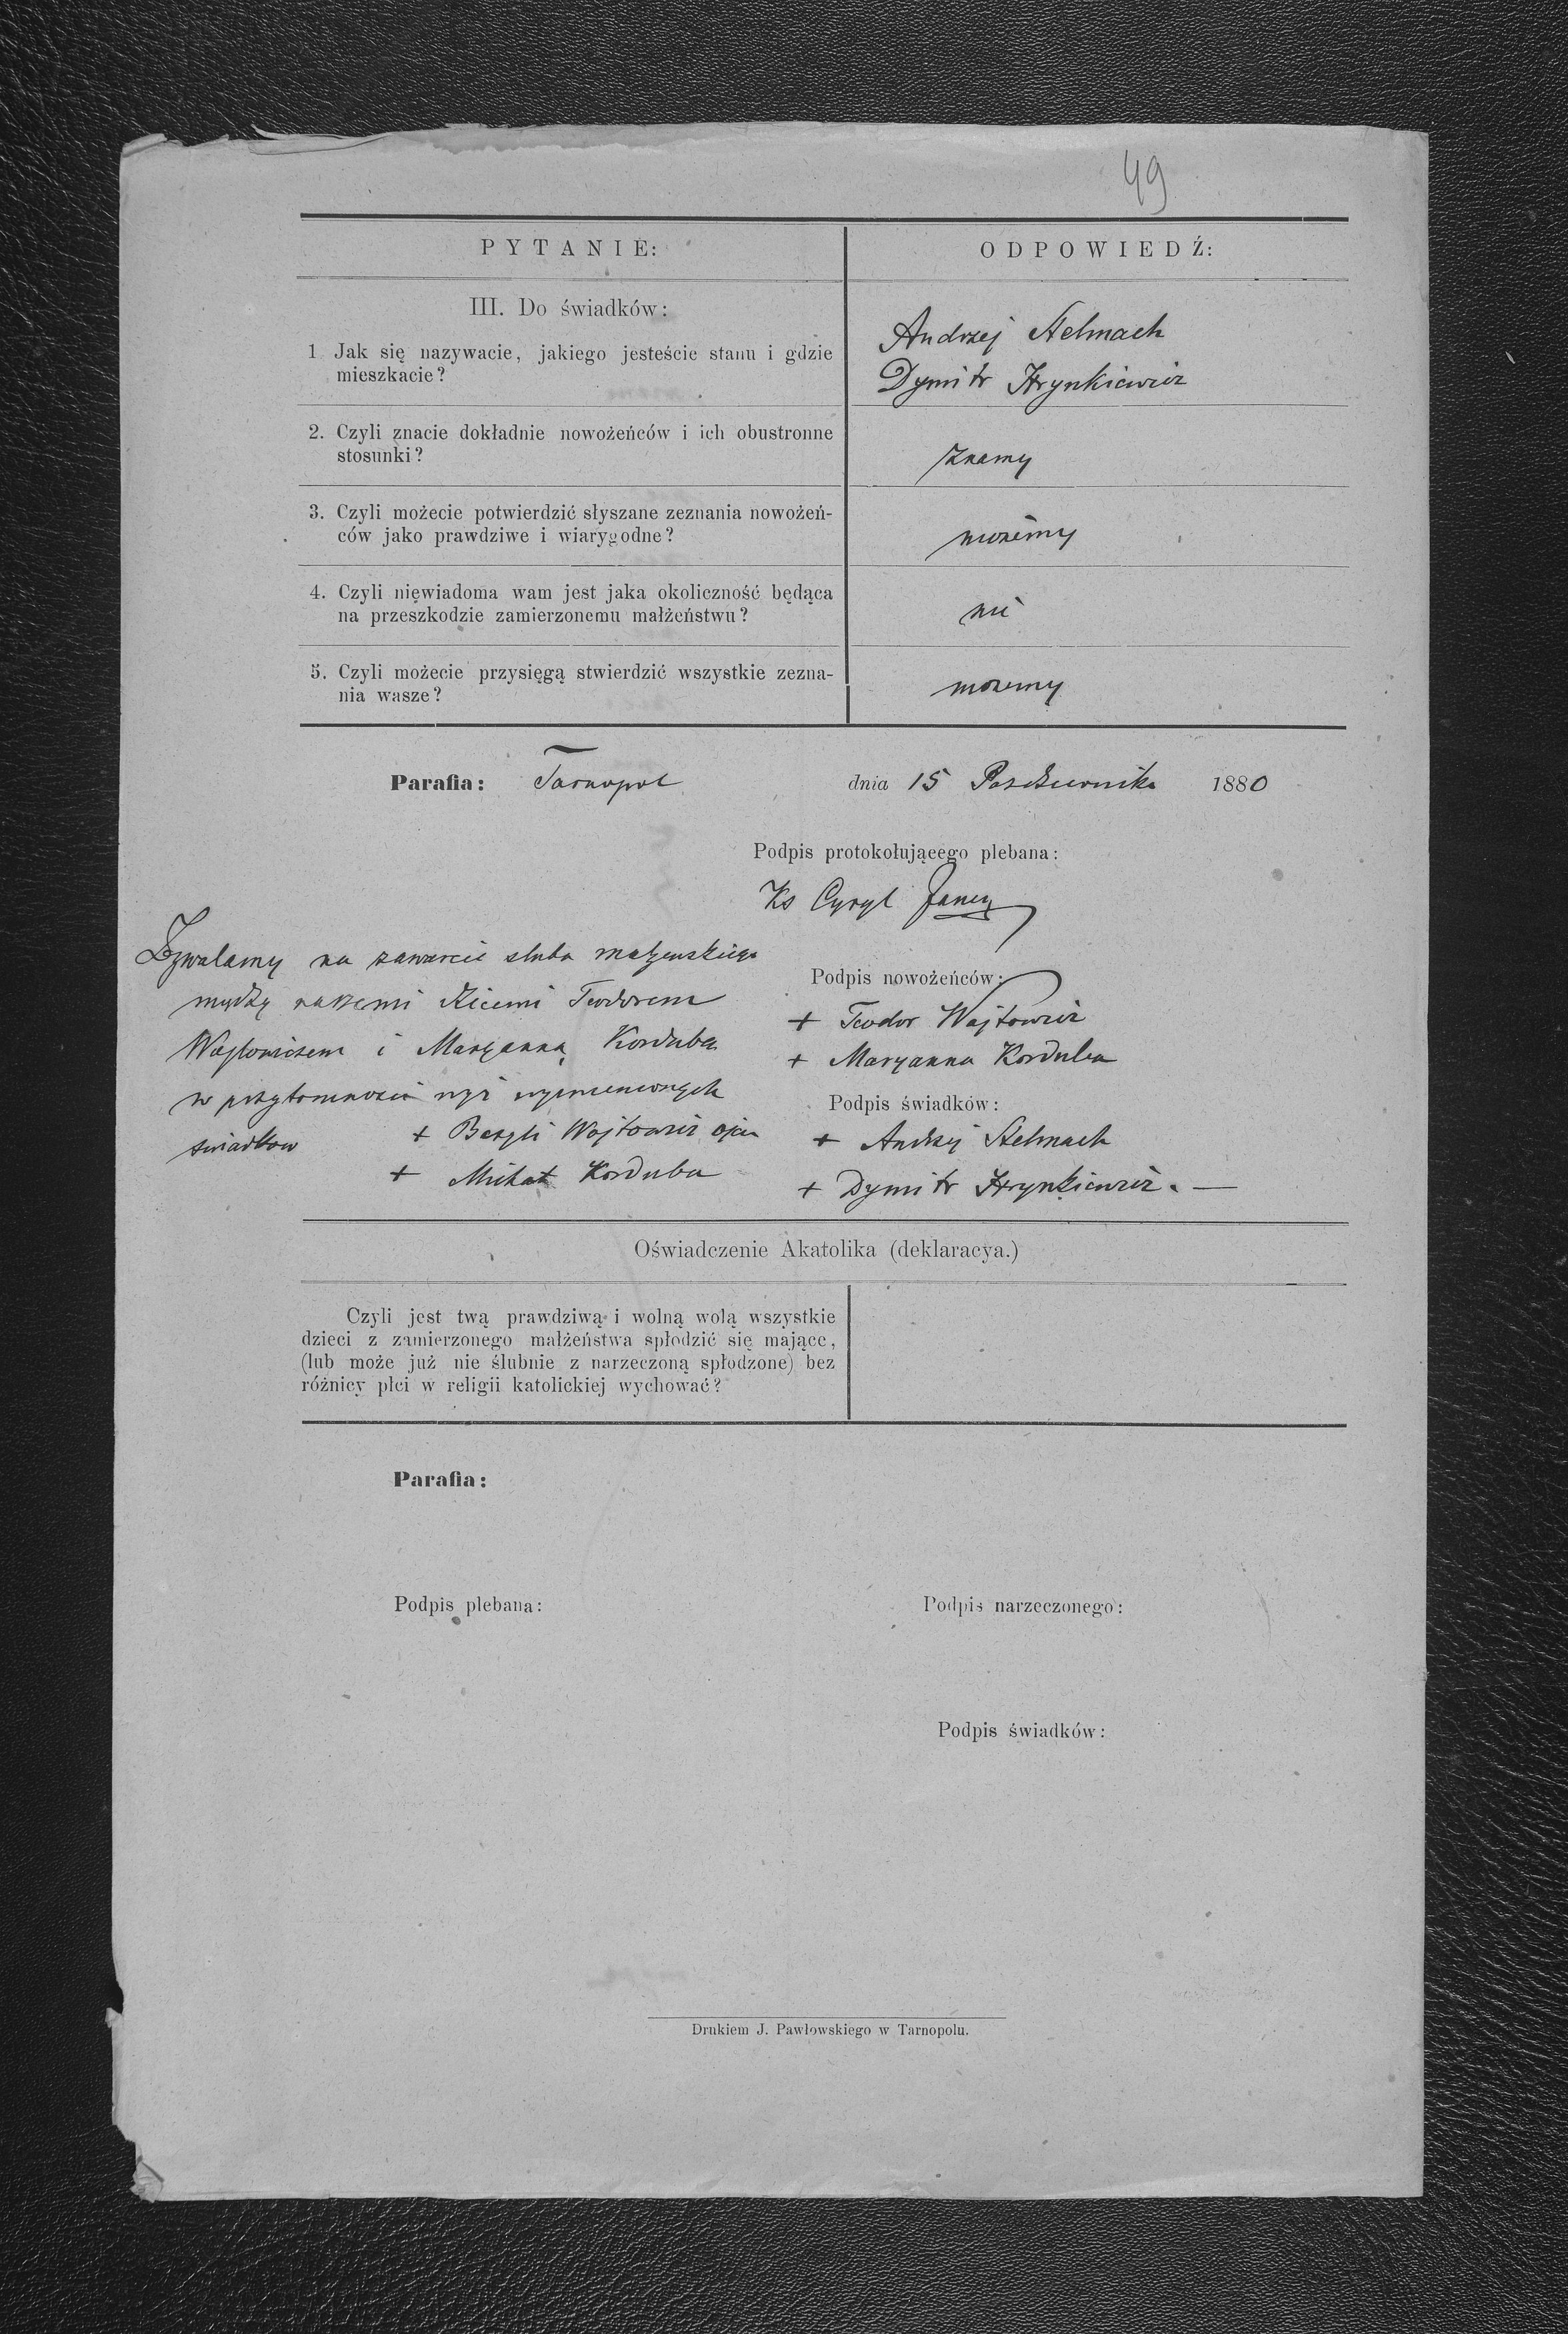 49
PYTANIE:
ODPOWIEDŹ:
III. Do świadków:
1 Jak się nazywacie, jakiego jesteście stanu i gdzie
mieszkacie?
Andrzej Stelmach
Dymitr Hrynkiewicz
2. Czyli znacie dokładnie nowożeńców i ich obustronne
stosunki?
znamy
3. Czyli możecie potwierdzić słyszane zeznania nowożeń-
ców jako prawdziwe i wiarygodne?
możemy
4. Czyli niewiadoma wam jest jaka okoliczność będąca
na przeszkodzie zamierzonemu małżeństwu?
nie
5. Czyli możecie przysięgą stwierdzić wszystkie zezna-
nia wasze?
możemy
Parafia: Tarnopol dnia 15 Października 1880
Podpis protokołującego plebana:
Ks Cyryl
Zezwalamy na zawarcie ślubu małżeńskiego
między naszemi dziećmi Teodorem
Wojtowiczem i Maryanną Korduba
w przytomności niżej wymienionych
świadków
+ Bazyli Wojtowicz ojciec
+ Michał Korduba
Podpis nowożeńców:
+ Teodor Wojtowicz
+ Maryanna Korduba
Podpis świadków:
+ Andrzej Stelmach
+ Dymitr Hrynkiewicz. —
Oświadczenie Akatolika (deklaracya.)
Czyli jest twą prawdziwą i wolną wolą wszystkie
dzieci z zamierzonego małżeństwa spłodzić się mające,
(lub może już nie ślubnie z narzeczoną spłodzone) bez
różnicy płci w religii katolickiej wychować?
Parafia:
Podpis plebana:
Podpis narzeczonego:
Podpis świadków:
Drukiem J. Pawłowskiego w Tarnopolu.